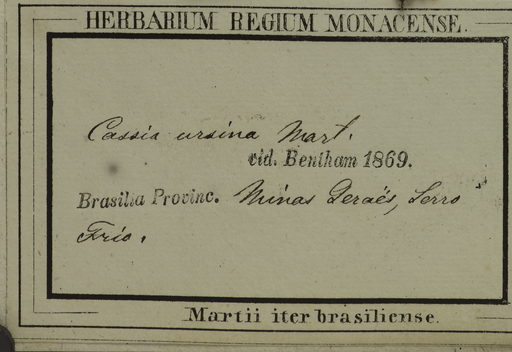 HERBARIUM REGIUM MONACENSE.
Cassia ursina Mart.
vid. Bentham 1869.
Brasilia Provinc. Minas Geraës, Serro
Frio.
Martii iter brasiliense.